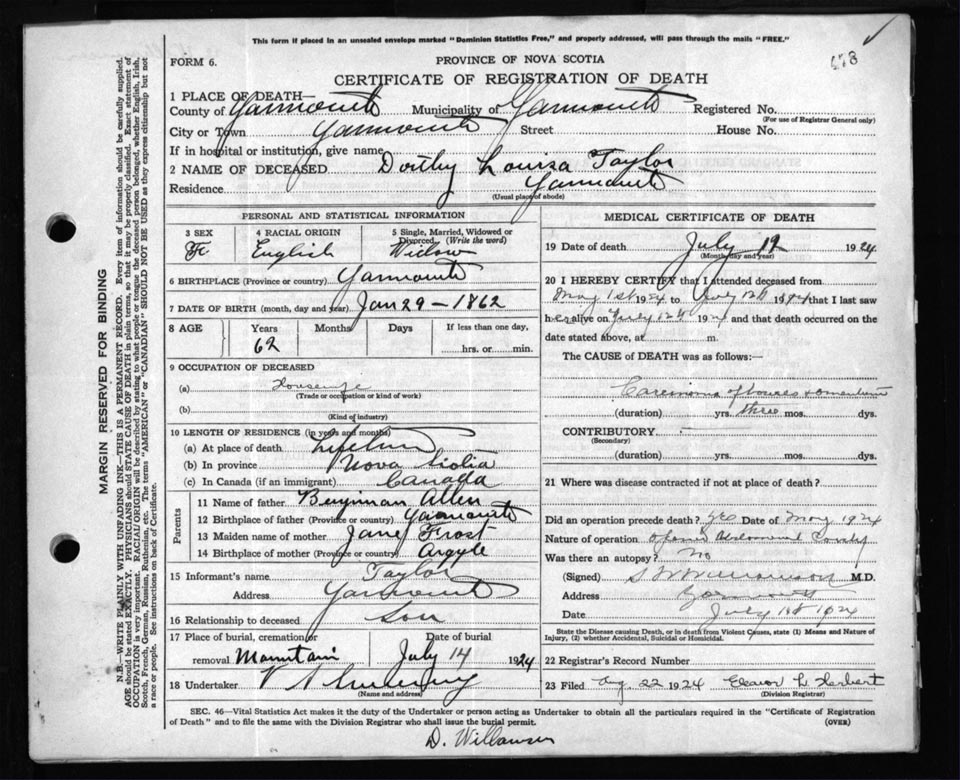 This form if placed in an unsealed envelope marked "Dominion Statistics Free," and properly addressed, will pass through the mails "FREE."
FORM 6.
PROVINCE OF NOVA SCOTIA
CERTIFICATE OF REGISTRATION OF DEATH
1 PLACE OF DEATH—
County of Yarmouth Municipality of Yarmouth Registered No.
(For use of Registrar General only)
City or Town Yarmouth Street House No.
If in hospital or institution, give name
2 NAME OF DECEASED Dorthy Louisa Taylor
Residence Yarmouth
(Usual place of abode)
MARGIN RESERVED FOR BINDING
N.B.—WRITE PLAINLY WITH UNFADING INK—THIS IS A PERMANENT RECORD. Every item of information should be carefully supplied.
AGE should be stated EXACTLY. PHYSICIANS should STATE CAUSE OF DEATH in plain terms, so that it may be properly classified. Exact statement of
OCCUPATION is very important. RACIAL ORIGIN will be described by stating to what people or tongue the deceased person belonged, whether English, Irish,
Scotch, French, German, Russian, Ruthenian, etc. The terms "AMERICAN" or "CANADIAN" SHOULD NOT BE USED as they express citizenship but not
a race or people. See instructions on back of Certificate.
PERSONAL AND STATISTICAL INFORMATION
3 SEX 4 RACIAL ORIGIN 5 Single, Married, Widowed or
Divorced (Write the word)
F English Widow
6 BIRTHPLACE (Province or country) Yarmouth
7 DATE OF BIRTH (month, day and year) Jan 29 - 1862
8 AGE Years Months Days If less than one day,
62 hrs. or min.
9 OCCUPATION OF DECEASED
(a) Housewife
(Trade or occupation or kind of work)
(b)
(Kind of industry)
10 LENGTH OF RESIDENCE (in years and months)
(a) At place of death Lifetime
(b) In province Nova Scotia
(c) In Canada (if an immigrant) Canada
Parents
11 Name of father Benjiman Allen
12 Birthplace of father (Province or country) Yarmouth
13 Maiden name of mother Jane Frost
14 Birthplace of mother (Province or country) Argyle
15 Informant's name Taylor
Address Yarmouth
16 Relationship to deceased Son
17 Place of burial, cremation or Date of burial
removal Mountain July 14 1924
18 Undertaker
(Name and address)
MEDICAL CERTIFICATE OF DEATH
19 Date of death July 12 1924
(Month, day and year)
20 I HEREBY CERTIFY that I attended deceased from
May 1st 1924 to July 12th 1924 that I last saw
her alive on July 12th 1924 and that death occurred on the
date stated above, at m.
The CAUSE of DEATH was as follows:
Carcinoma of bowels & omentum
(duration) yrs. three mos. dys.
CONTRIBUTORY
(Secondary)
(duration) yrs. mos. dys.
21 Where was disease contracted if not at place of death?
Did an operation precede death? yes Date of May 1924
Nature of operation Opened Abdominal Cavity
Was there an autopsy? No
(Signed) M.D.
Address Yarmouth
Date July 1924
State the Disease causing Death, or in death from Violent Causes, state (1) Means and Nature of
Injury, (2) whether Accidental, Suicidal or Homicidal.
22 Registrar's Record Number
23 Filed Aug 22 1924 Eleanor L Herbert
(Division Registrar)
SEC. 46—Vital Statistics Act makes it the duty of the Undertaker or person acting as Undertaker to obtain all the particulars required in the "Certificate of Registration
of Death" and to file the same with the Division Registrar who shall issue the burial permit. (OVER)